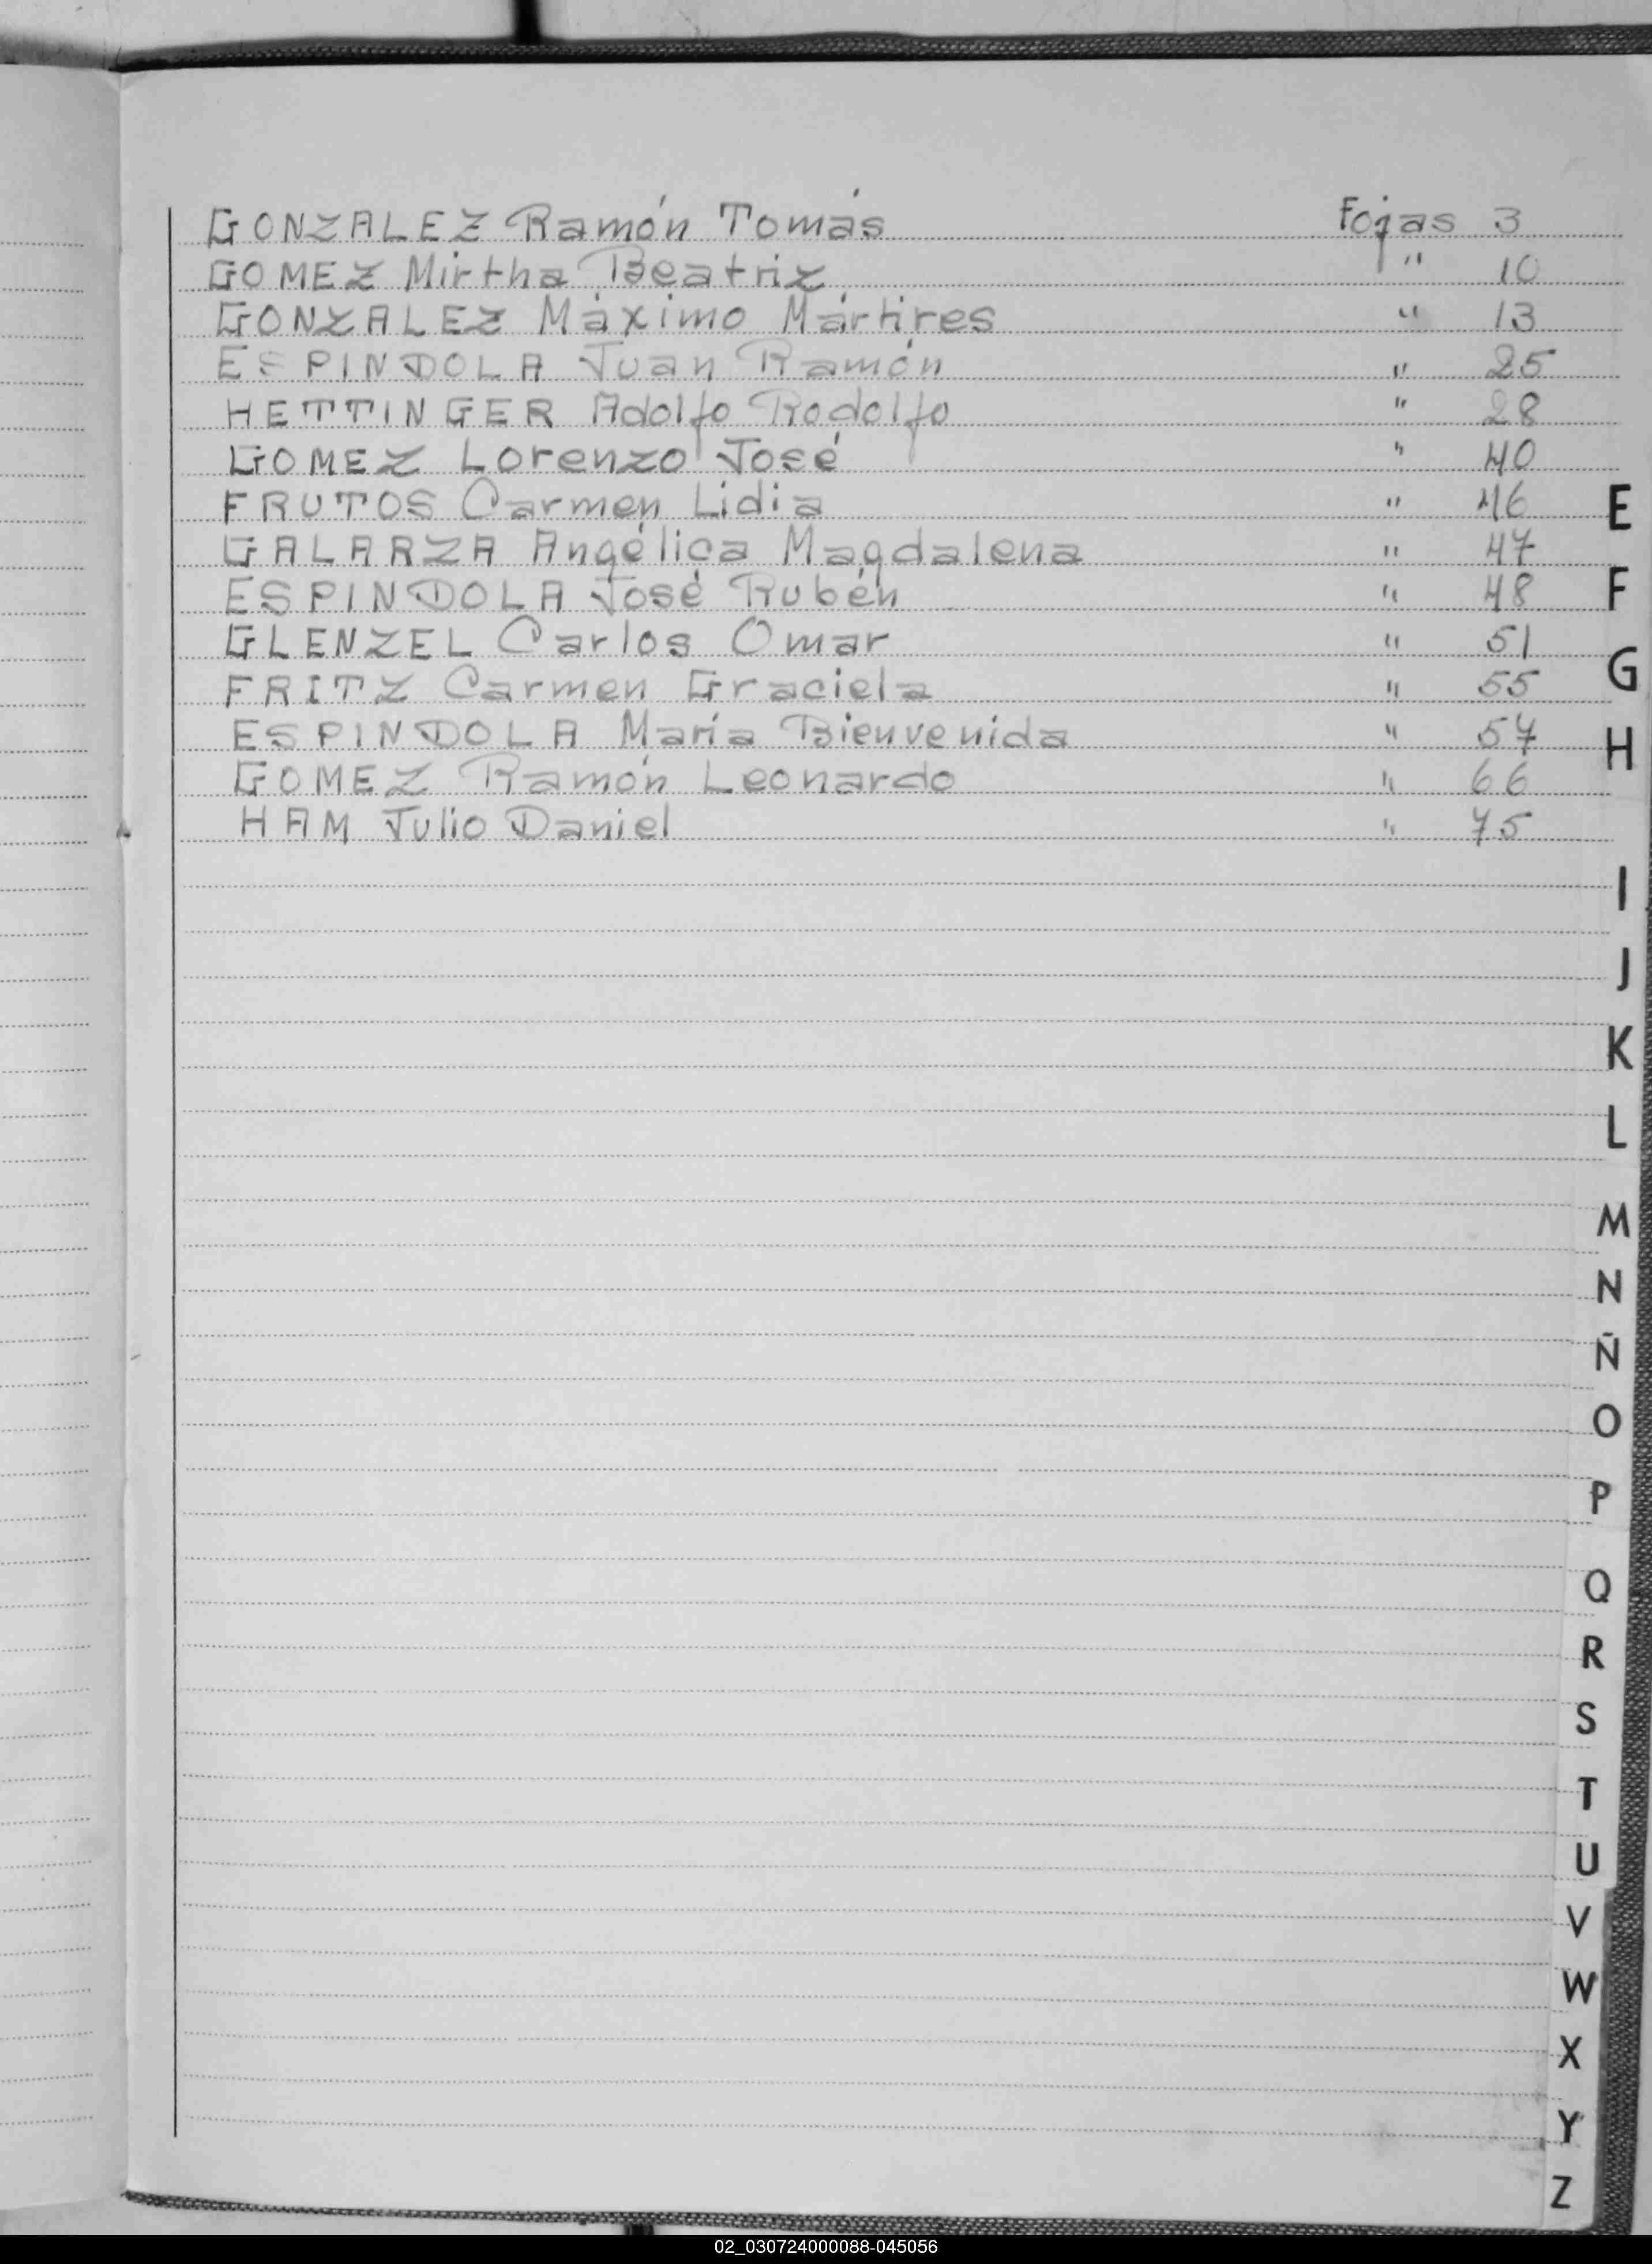 GONZALEZ Ramón Tomás Fojas 3
GOMEZ Mirtha Beatriz " 10
GONZALEZ Máximo Mártires " 13
ESPINDOLA Juan Ramón " 25
HETTINGER Adolfo Rodolfo " 28
GOMEZ Lorenzo José " 40
FRUTOS Carmen Lidia " 46
GALARZA Angélica Magdalena " 47
ESPINDOLA José Rubén " 48
GLENZEL Carlos Omar " 51
FRITZ Carmen Graciela " 55
ESPINDOLA María Bienvenida " 57
GOMEZ Ramón Leonardo " 66
HAM Julio Daniel " 75
E
F
G
H
I
J
K
L
M
N
Ñ
O
P
Q
R
S
T
U
V
W
X
Y
Z
02_030724000088-045056